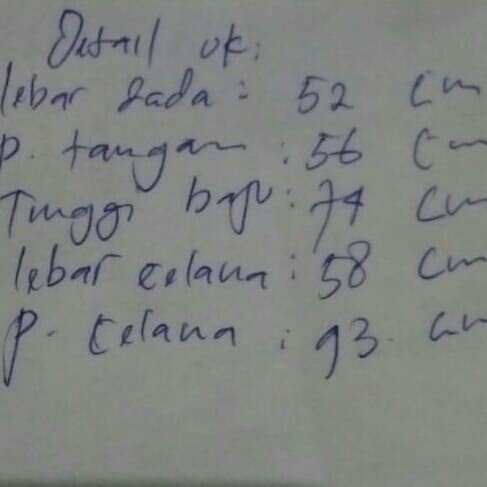 Detail uk:
lebar dada : 52 cm
p. tangan : 56 cm
Tinggi baju : 74 cm
lebar celana : 58 cm
p. celana : 93 cm